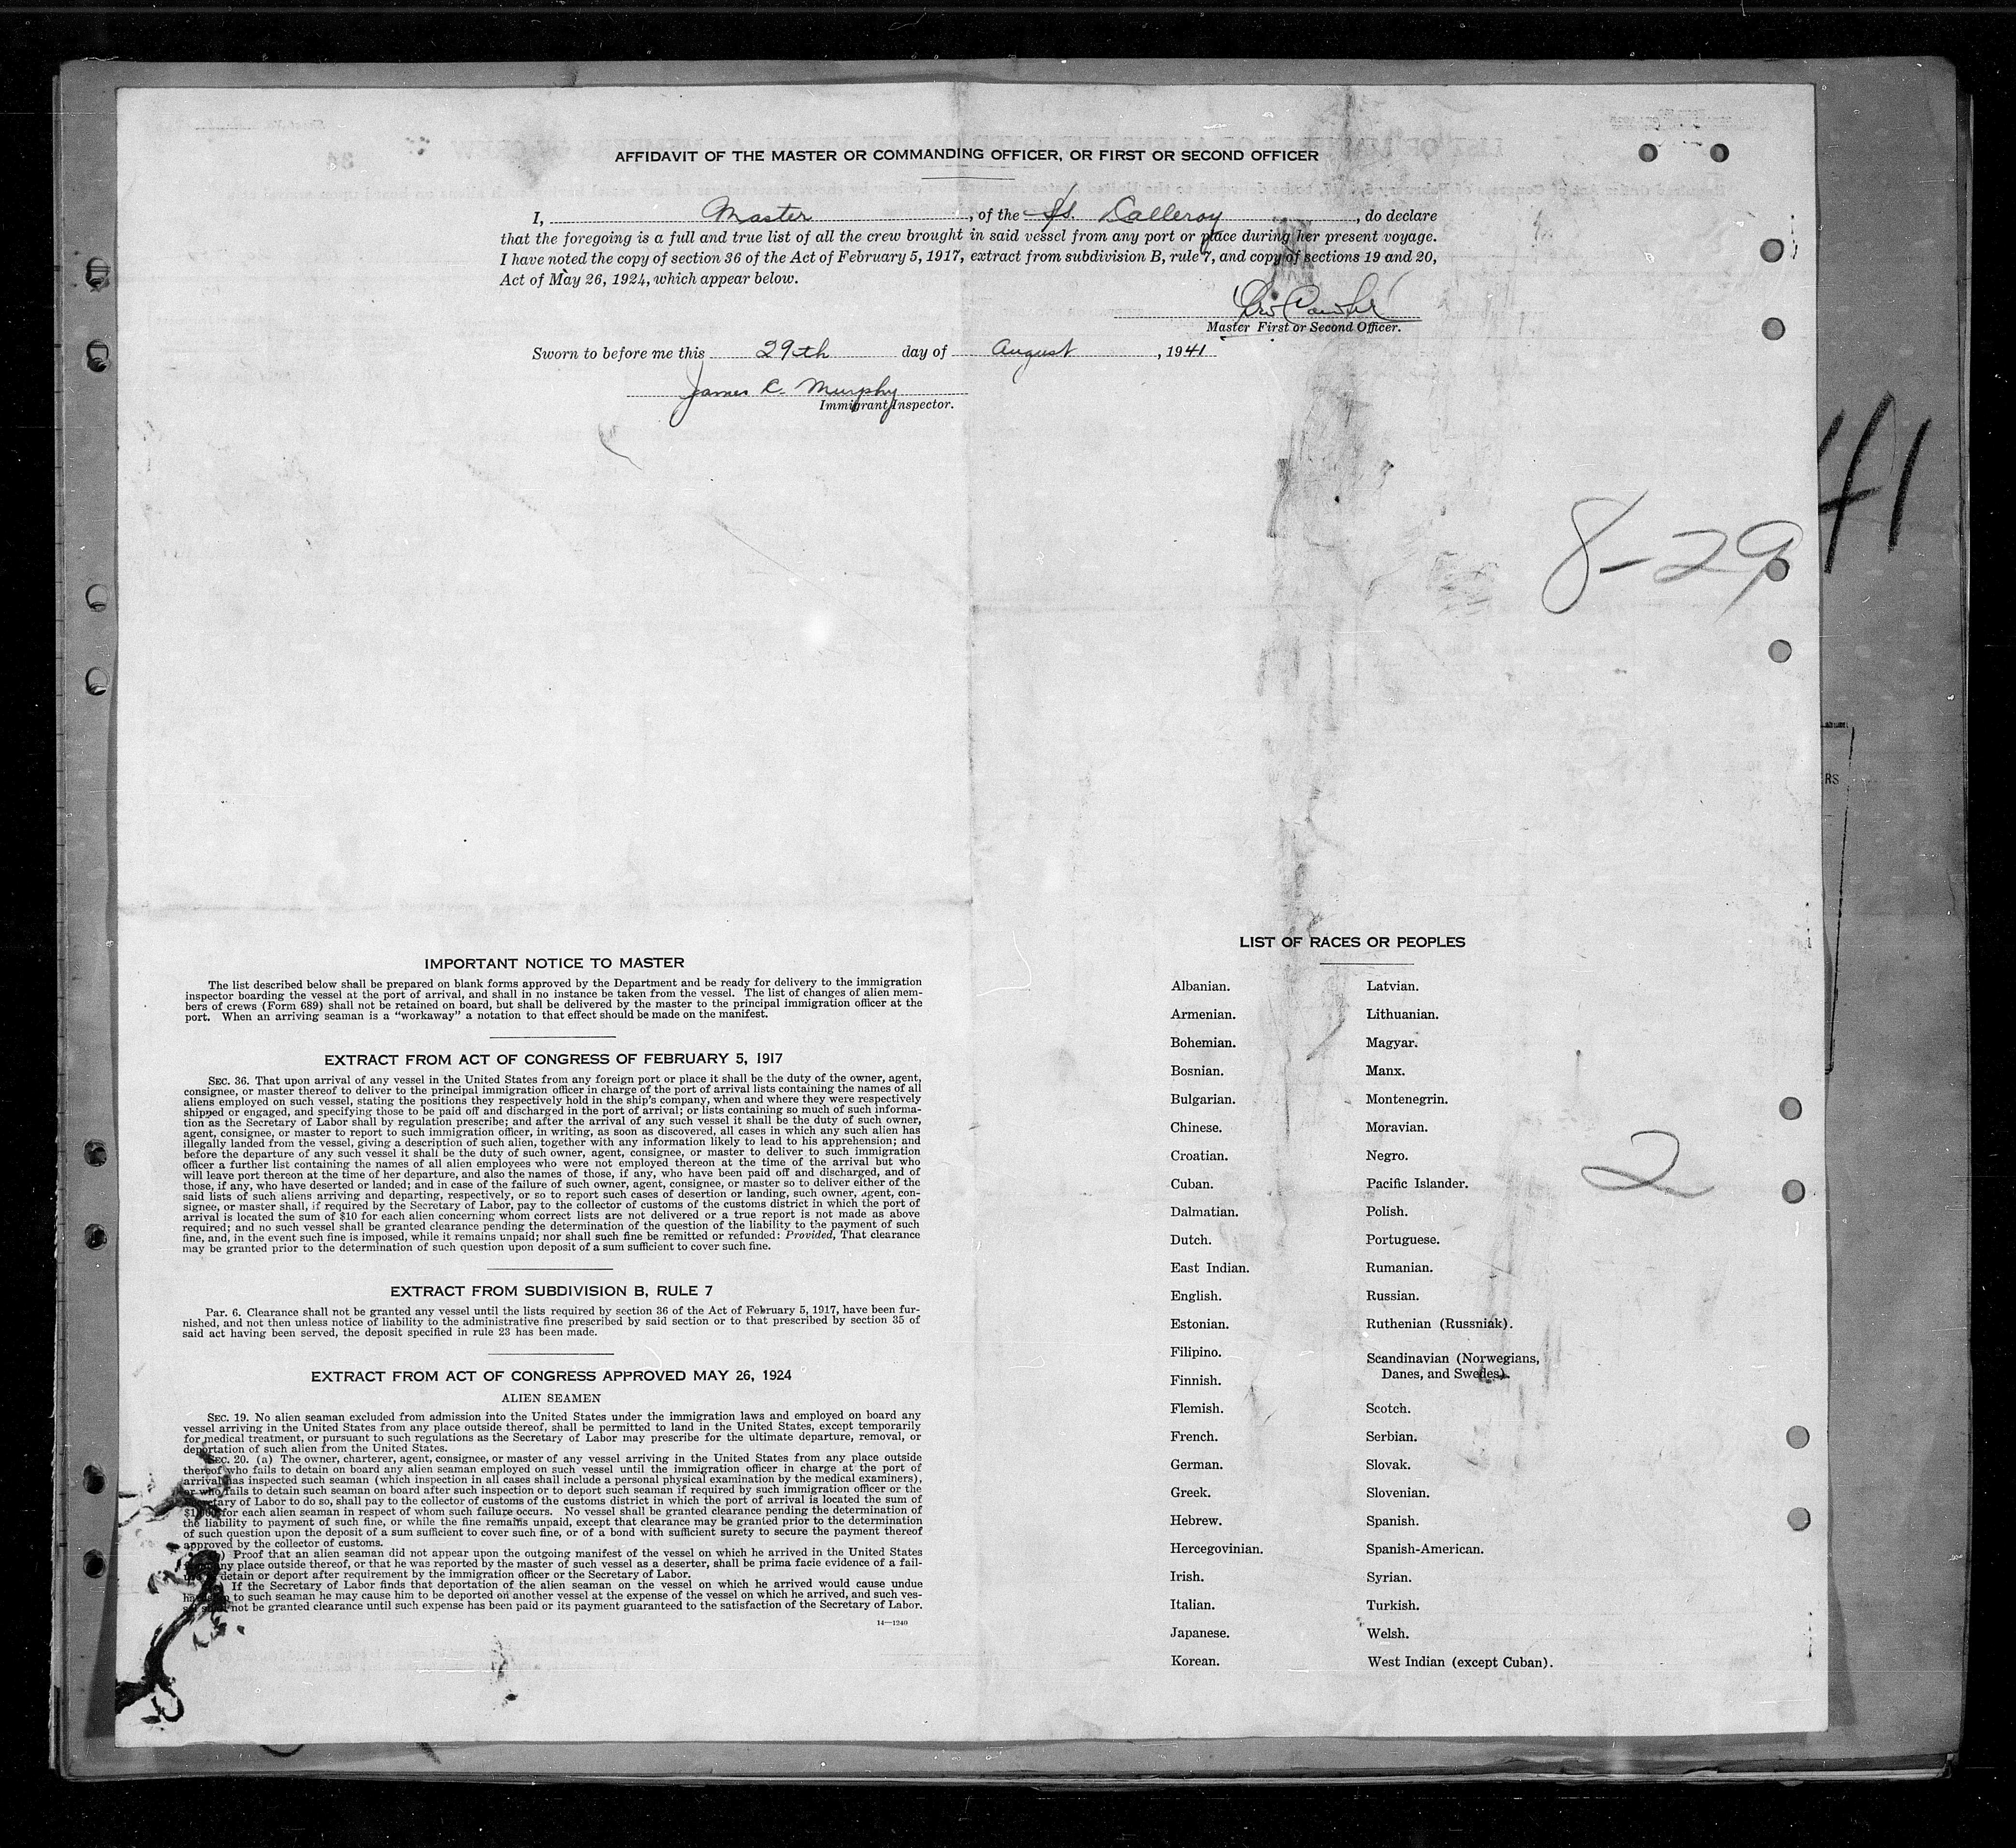 AFFIDAVIT OF THE MASTER OR COMMANDING OFFICER, OR FIRST OR SECOND OFFICER
I, Master, of the SS. Dalleroy, do declare
that the foregoing is a full and true list of all the crew brought in said vessel from any port or place during her present voyage.
I have noted the copy of section 36 of the Act of February 5, 1917, extract from subdivision B, rule 7, and copy of sections 19 and 20,
Act of May 26, 1924, which appear below.
Master First or Second Officer.
Sworn to before me this 29th day of August, 1941
James C. Murphy
Immigrant Inspector.
41
8-29
RS
IMPORTANT NOTICE TO MASTER
The list described below shall be prepared on blank forms approved by the Department and be ready for delivery to the immigration
inspector boarding the vessel at the port of arrival, and shall in no instance be taken from the vessel. The list of changes of alien mem-
bers of crews (Form 689) shall not be retained on board, but shall be delivered by the master to the principal immigration officer at the
port. When an arriving seaman is a "workaway" a notation to that effect should be made on the manifest.
EXTRACT FROM ACT OF CONGRESS OF FEBRUARY 5, 1917
SEC. 36. That upon arrival of any vessel in the United States from any foreign port or place it shall be the duty of the owner, agent,
consignee, or master thereof to deliver to the principal immigration officer in charge of the port of arrival lists containing the names of all
aliens employed on such vessel, stating the positions they respectively hold in the ship's company, when and where they were respectively
shipped or engaged, and specifying those to be paid off and discharged in the port of arrival; or lists containing so much of such informa-
tion as the Secretary of Labor shall by regulation prescribe; and after the arrival of any such vessel it shall be the duty of such owner,
agent, consignee, or master to report to such immigration officer, in writing, as soon as discovered, all cases in which any such alien has
illegally landed from the vessel, giving a description of such alien, together with any information likely to lead to his apprehension; and
before the departure of any such vessel it shall be the duty of such owner, agent, consignee, or master to deliver to such immigration
officer a further list containing the names of all alien employees who were not employed thereon at the time of the arrival but who
will leave port thereon at the time of her departure, and also the names of those, if any, who have been paid off and discharged, and of
those, if any, who have deserted or landed; and in case of the failure of such owner, agent, consignee, or master so to deliver either of the
said lists of such aliens arriving and departing, respectively, or so to report such cases of desertion or landing, such owner, agent, con-
signee, or master shall, if required by the Secretary of Labor, pay to the collector of customs of the customs district in which the port of
arrival is located the sum of $10 for each alien concerning whom correct lists are not delivered or a true report is not made as above
required; and no such vessel shall be granted clearance pending the determination of the question of the liability to the payment of such
fine, and, in the event such fine is imposed, while it remains unpaid; nor shall such fine be remitted or refunded: Provided, That clearance
may be granted prior to the determination of such question upon deposit of a sum sufficient to cover such fine.
EXTRACT FROM SUBDIVISION B, RULE 7
Par. 6. Clearance shall not be granted any vessel until the lists required by section 36 of the Act of February 5, 1917, have been fur-
nished, and not then unless notice of liability to the administrative fine prescribed by said section or to that prescribed by section 35 of
said act having been served, the deposit specified in rule 23 has been made.
EXTRACT FROM ACT OF CONGRESS APPROVED MAY 26, 1924
ALIEN SEAMEN
SEC. 19. No alien seaman excluded from admission into the United States under the immigration laws and employed on board any
vessel arriving in the United States from any place outside thereof, shall be permitted to land in the United States, except temporarily
for medical treatment, or pursuant to such regulations as the Secretary of Labor may prescribe for the ultimate departure, removal, or
deportation of such alien from the United States.
SEC. 20. (a) The owner, charterer, agent, consignee, or master of any vessel arriving in the United States from any place outside
thereof who fails to detain on board any alien seaman employed on such vessel until the immigration officer in charge at the port of
arrival has inspected such seaman (which inspection in all cases shall include a personal physical examination by the medical examiners),
or who fails to detain such seaman on board after such inspection or to deport such seaman if required by such immigration officer or the
Secretary of Labor to do so, shall pay to the collector of customs of the customs district in which the port of arrival is located the sum of
$1,000 for each alien seaman in respect of whom such failure occurs. No vessel shall be granted clearance pending the determination of
the liability to payment of such fine, or while the fine remains unpaid, except that clearance may be granted prior to the determination
of such question upon the deposit of a sum sufficient to cover such fine, or of a bond with sufficient surety to secure the payment thereof
approved by the collector of customs.
) Proof that an alien seaman did not appear upon the outgoing manifest of the vessel on which he arrived in the United States
any place outside thereof, or that he was reported by the master of such vessel as a deserter, shall be prima facie evidence of a fail-
detain or deport after requirement by the immigration officer or the Secretary of Labor.
If the Secretary of Labor finds that deportation of the alien seaman on the vessel on which he arrived would cause undue
to such seaman he may cause him to be deported on another vessel at the expense of the vessel on which he arrived, and such ves-
not be granted clearance until such expense has been paid or its payment guaranteed to the satisfaction of the Secretary of Labor.
14—1240
LIST OF RACES OR PEOPLES
Albanian.
Armenian.
Bohemian.
Bosnian.
Bulgarian.
Chinese.
Croatian.
Cuban.
Dalmatian.
Dutch.
East Indian.
English.
Estonian.
Filipino.
Finnish.
Flemish.
French.
German.
Greek.
Hebrew.
Hercegovinian.
Irish.
Italian.
Japanese.
Korean.
Latvian.
Lithuanian.
Magyar.
Manx.
Montenegrin.
Moravian.
Negro.
Pacific Islander.
Polish.
Portuguese.
Rumanian.
Russian.
Ruthenian (Russniak).
Scandinavian (Norwegians,
Danes, and Swedes).
Scotch.
Serbian.
Slovak.
Slovenian.
Spanish.
Spanish-American.
Syrian.
Turkish.
Welsh.
West Indian (except Cuban).
2